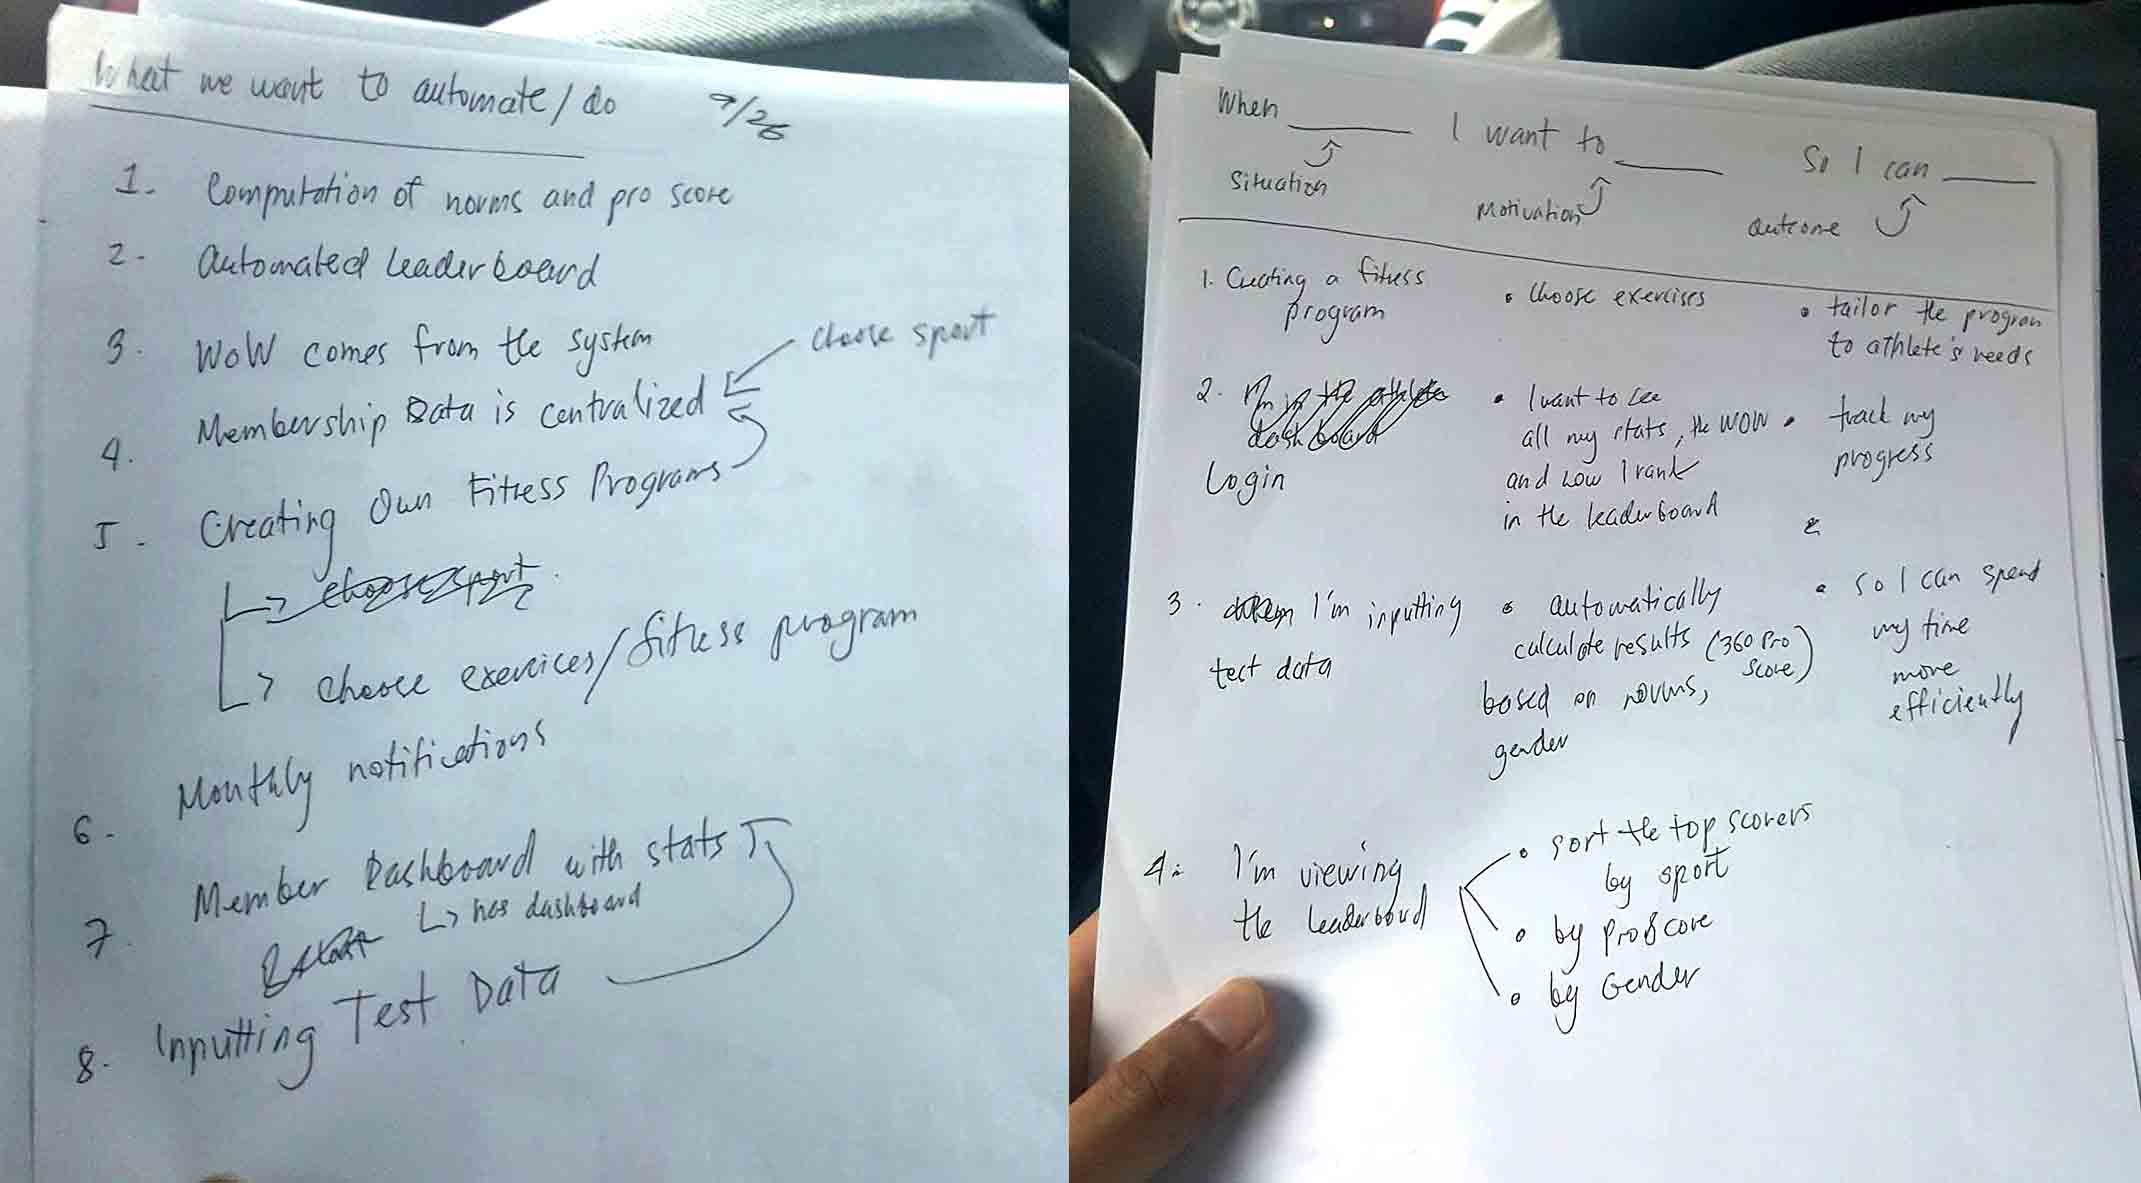 What we want to automate/do 9/26
1. Computation of norms and pro score
2. Automated Leaderboard
3. WOW comes from the system
choose sport
4. Membership Data is centralized
5. Creating Own Fitness Programs
choose sport
choose exercices/fitness program
6. Monthly notifications
7. Member Dashboard with stats
has dashboard
8. Inputting Test Data
When ______ I want to ______ So I can ______
Situation
Motivation
outcome
1. Creating a fitness
program
• choose exercises
• tailor the program
to athlete's needs
2. I'm in the athlete
dashboard
Login
• I want to see
all my stats, the WOW
and how I rank
in the leaderboard
• track my
progress
3. I'm inputting
test data
• automatically
calculate results (360 Pro
Score)
based on norms,
gender
• so I can spend
my time
more
efficiently
4. I'm viewing
the leaderboard
• sort the top scorers
by sport
• by ProScore
• by Gender